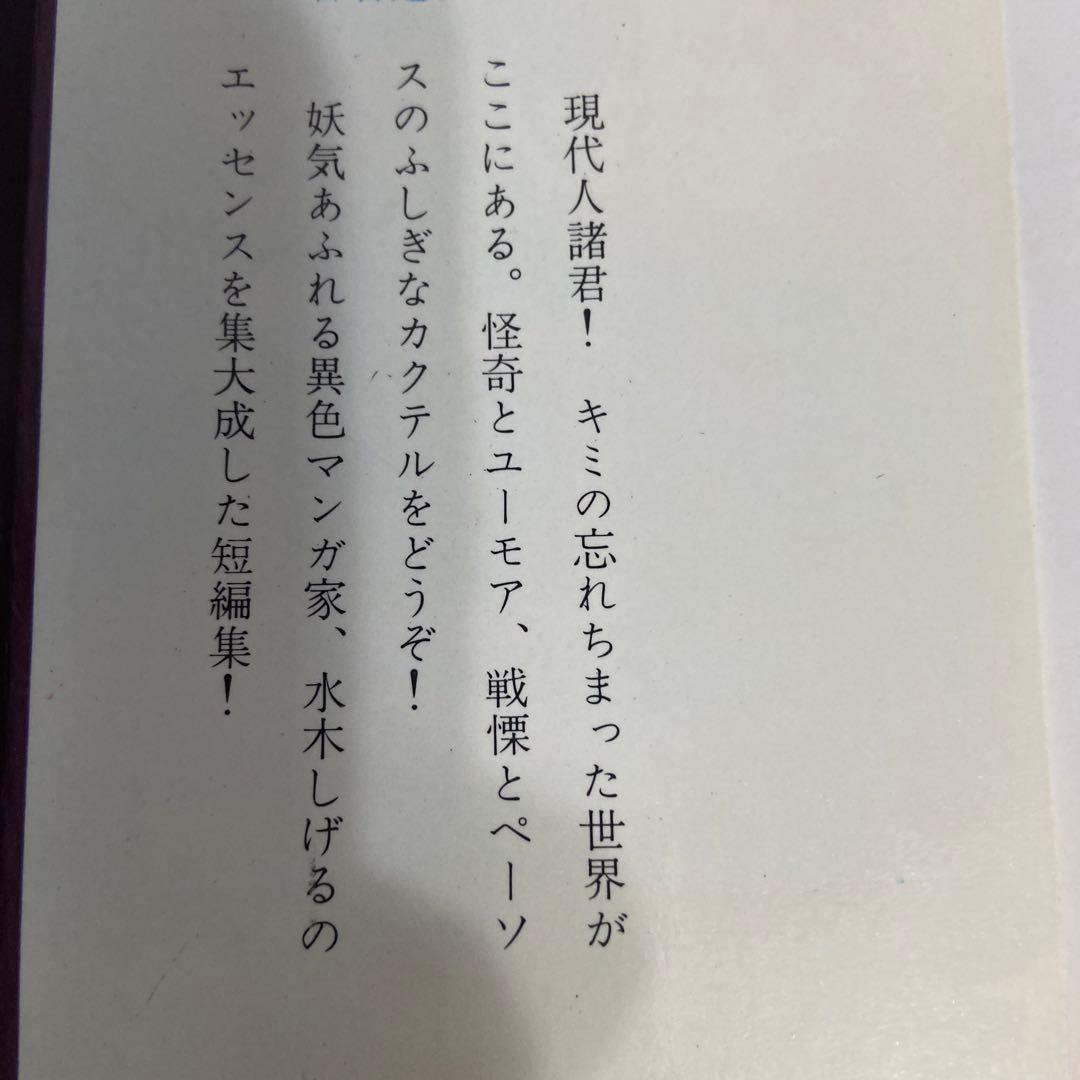 現代人諸君！　キミの忘れちまった世界が
ここにある。怪奇とユーモア、戦慄とペーソ
スのふしぎなカクテルをどうぞ！
妖気あふれる異色マンガ家、水木しげるの
エッセンスを集大成した短編集！